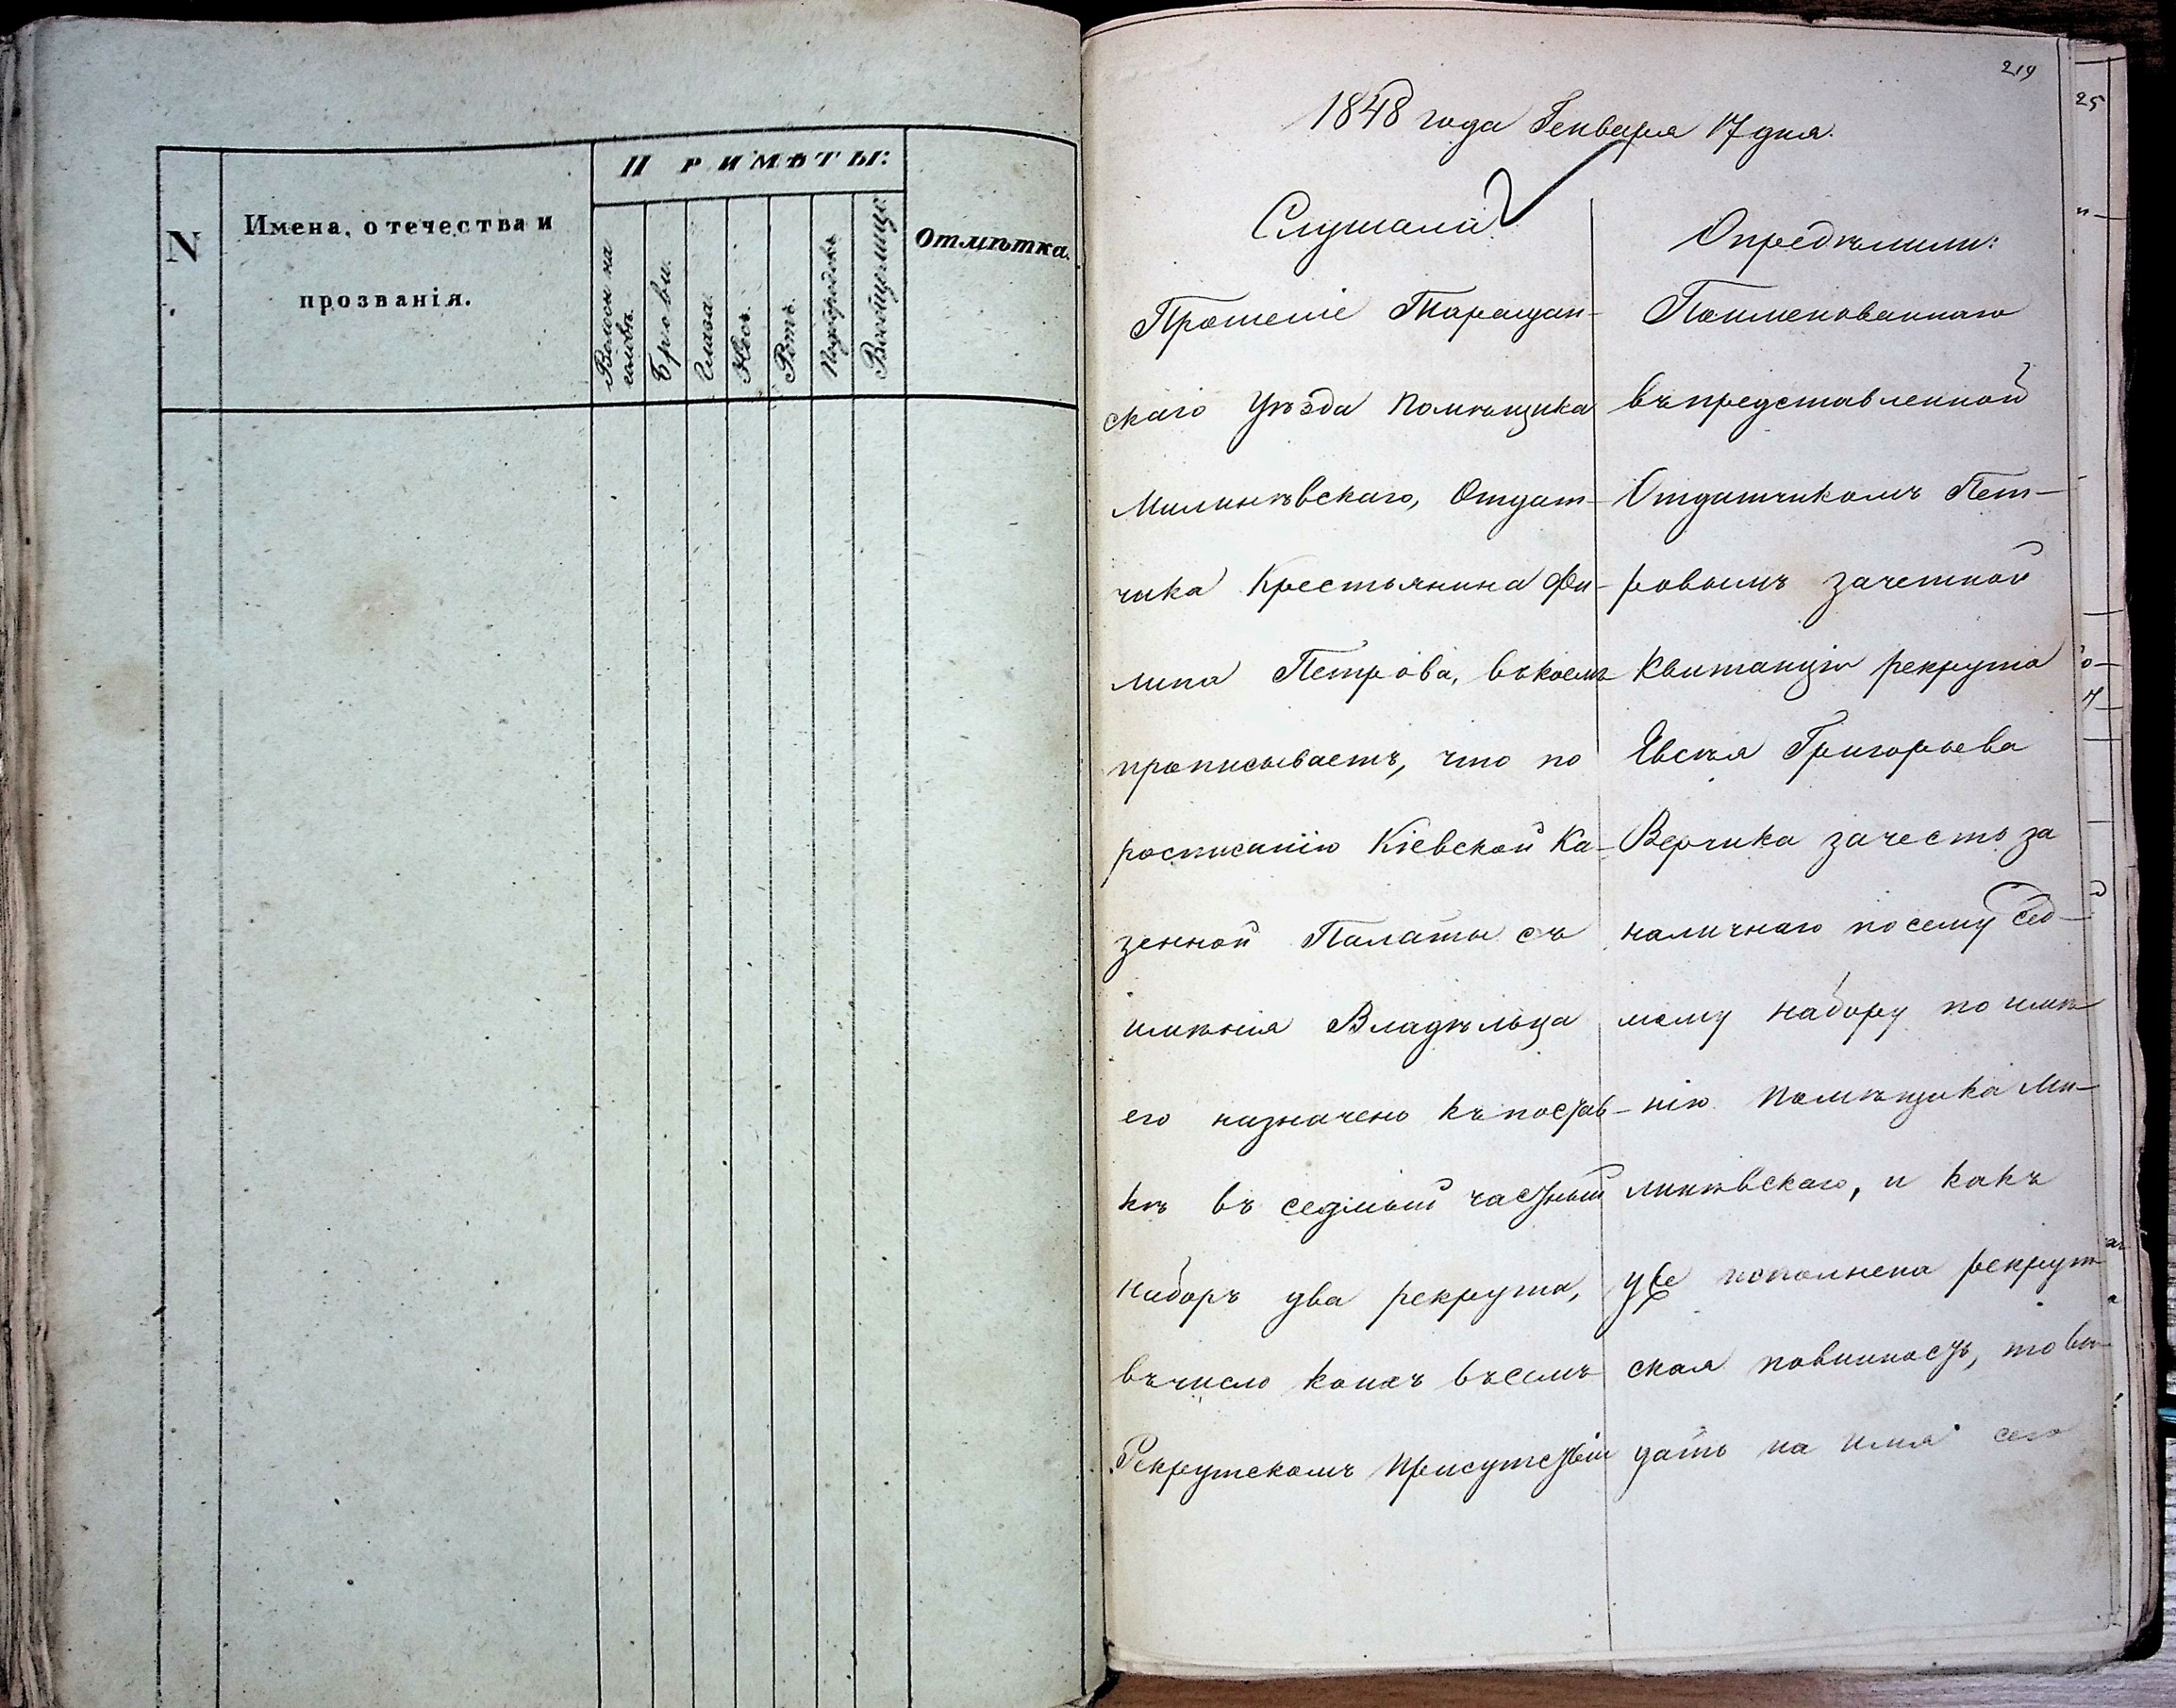 N
Имена, отечества и
прозванія.
ПРИМѢТЫ:
Волосы на
головѣ.
Брови.
Глаза.
Носъ.
Ротъ.
Подбородокъ.
Вообще лице.
Отмѣтка.
219
1848 года Генваря 17 дня.
Слушали
Прошеніе Таращан-
скаго уѣзда помѣщика
Милинѣвскаго, Отдат-
чика Крестьянина Фи-
липа Петрова, въ коемъ
прописываетъ, что по
росписанію Кіевской Ка-
зенной Палаты съ
имѣнія Владѣльца
его назначено къ постав-
кѣ въ седмый частный
наборъ два рекрута,
въ число коихъ въ семъ
Рекрутскомъ присутствіи
Опредѣлили:
Поименованнаго
въ представленной
Отдатчикомъ Пет-
ровымъ зачетной
Квитанціи рекрута
Евсѣя Григорьева
Верчика зачесть за
наличнаго по сему сед-
мому набору по имѣ-
нію помѣщика Ми-
линѣвскаго, и какъ
уже исполнена рекрут-
ская повинность, то вы-
дать на имя сего
25